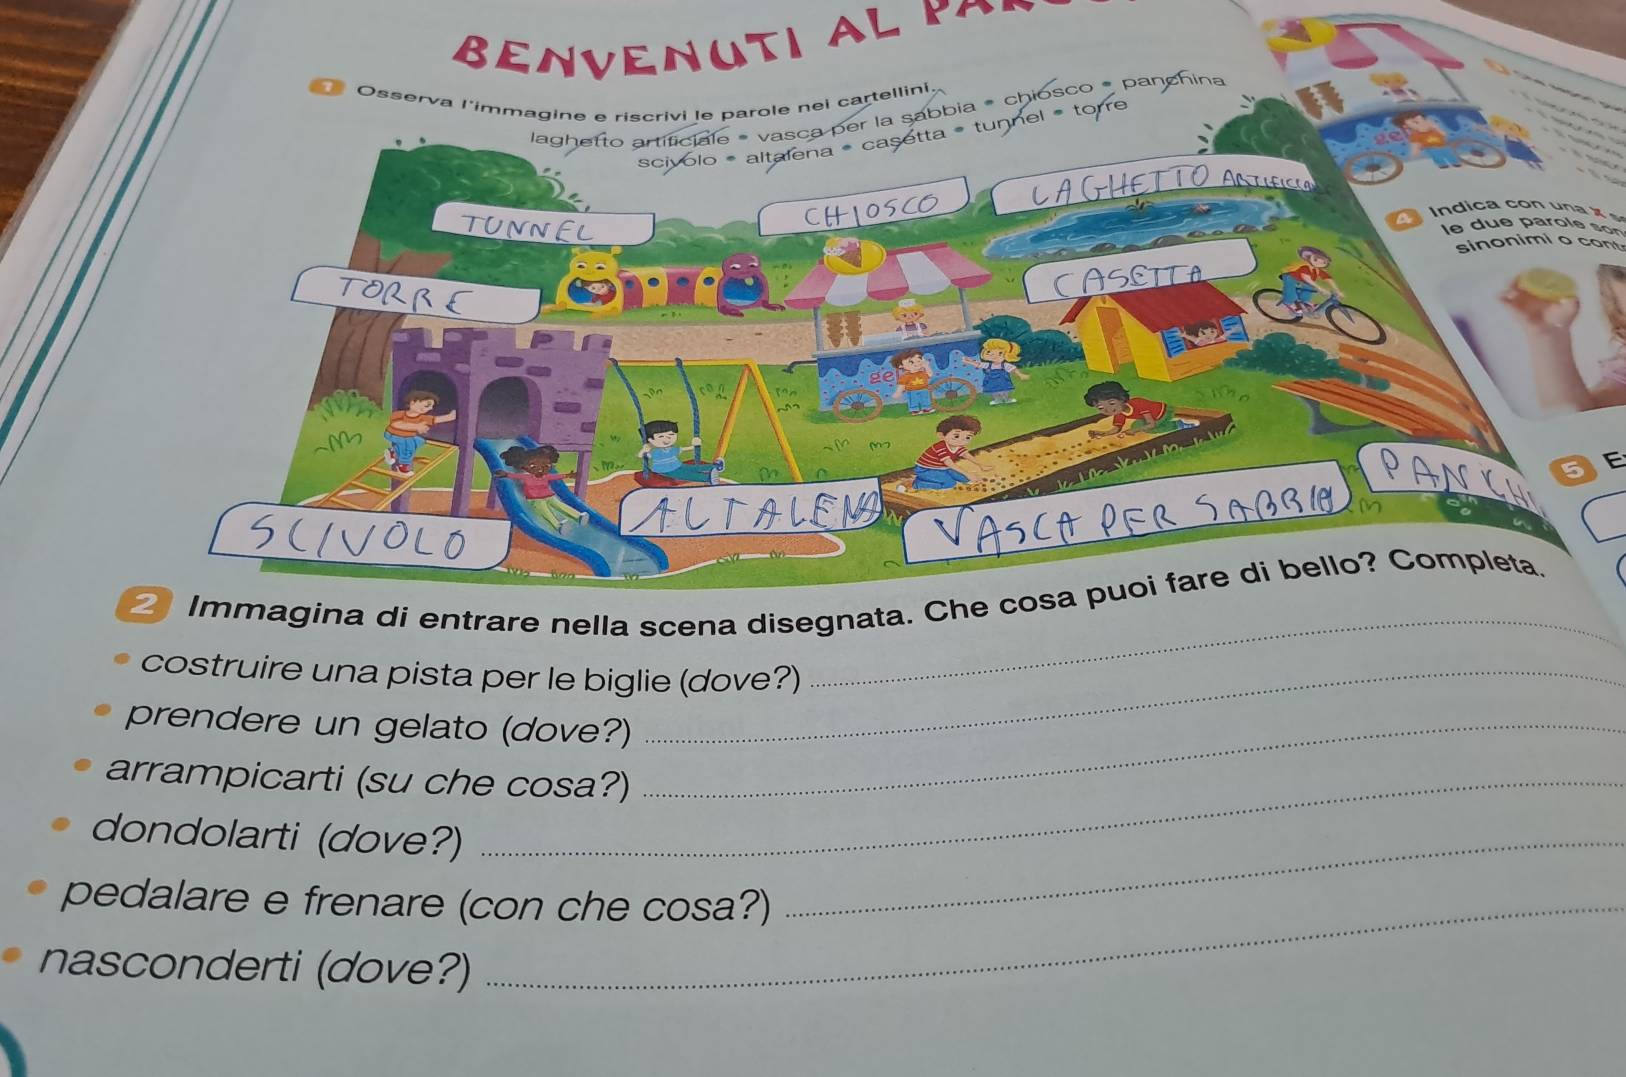 BENVENUTI AL
1 Osserva l'immagine e riscrivi le parole nei cartellini.
laghetto artificiale • vasca per la sabbia • chiosco • panchina
scivolo • altalena • casetta • tunnel • torre
TUNNEL
CHIOSCO
LAGHETTO ARTIFICIA
TORRE
CASETTA
ge
SCIVOLO
ALTALENA
VASCA PER SABBIA
PANCHI
2 Immagina di entrare nella scena disegnata. Che cosa puoi fare di bello? Completa.
• costruire una pista per le biglie (dove?)
• prendere un gelato (dove?)
• arrampicarti (su che cosa?)
• dondolarti (dove?)
• pedalare e frenare (con che cosa?)
• nasconderti (dove?)
ge
4 Indica con una X s
le due parole son
sinonimi o cont
5 E